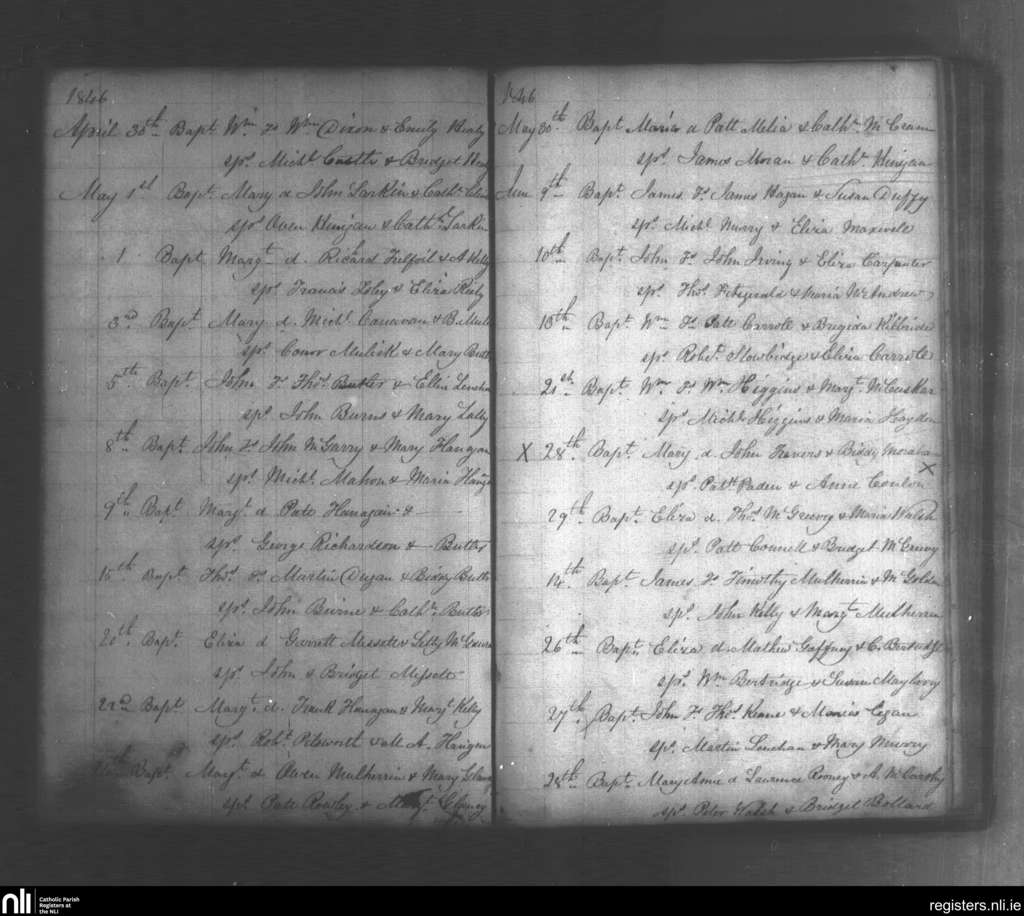 1846
April 30th Bapt Wm Fs Wm Dixon & Emily
sps. Michl Castle & Bridget
May 1st Bapt. Mary d John Larkin & Cathn
sps Owen & Cathn Larkin
1 Bapt Margt d. Ricard & A Kelly
sps. Francis & Eliza
3rd Bapt. Mary d. Michl. Canavan & B.
sps. Conor Mulick & Mary
5th Bapt. John Fs Thos. Butler & Ellin
sps. John Burns & Mary Lally
8th Bapt. John Fs John McGarry & Mary Hanigan
sps. Michl. Mahon & Maria
9th Bapt Margt. d Patt Hanagan &
sps. George Richardson & — Butler
15th Bapt Thos. Fs Martin Dugan & Biddy Butler
sps. John Beirne & Cathn. Butler
20th Bapt. Eliza d Garrett Missett & Letty
sps. John & Bridget Missett
22nd Bapt Margt. d. Frank Hanagan & Margt Kelly
sps. Robt. & M A. Hanigan
Bapt. Margt. d Owen Mulherrin & Mary
sps. Patt Rowley & Clancy
1846
May 30th Bapt Maria d Patt Melia & Cathn
sps. James Moran & Cathn.
June 9th Bapt. James Fs. James Hagan & Susan Duffy
sps. Michl Murry & Eliza Maxwell
10th Bapt. John Fs. John Irving & Eliza Carpenter
sps. Thos. Fitzgerald & Maria McAndrew
18th Bapt. Wm Fs Patt Carroll & Brigida Kilbride
sps. Robt. & Eliza Carroll
21st Bapt. Wm Fs Wm Higgins & Margt. McCuskar
sps Michl Higgins & Maria Hayden
X 28th Bapt. Mary d. John Travers & Biddy Morahan X
sps. Patt Paden & Anne Conlon
29th Bapt. Eliza d. Thos. McGreevy & Maria Walsh
sps. Patt Connell & Bridget McGreevy
14th Bapt. James Fs Timothy Mulherrin & M Golden
sps. John Kelly & Margt Mulherrin
26th Bapt. Eliza d. Mathew Gaffney & C. Bertridge
sps. Wm Bertridge & Susan
27th Bapt. John Fs Thos. Keane & Maria Cegan
sps. Martin Lenehan & Mary Murry
28th Bapt. Mary Anne d Lawrence Rooney & A. McCarthy
sps. Peter Walsh & Bridget Bollard
nli
Catholic Parish
Registers at
the NLI
registers.nli.ie